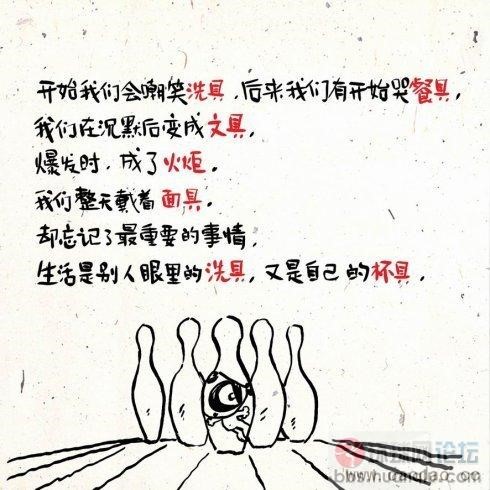 开始我们会嘲笑洗具，后来我们有开始哭餐具，
我们在沉默后变成文具，
爆发时，成了火炬。
我们整天戴着面具，
却忘记了最重要的事情，
生活是别人眼里的洗具，又是自己的杯具。
环球网论坛